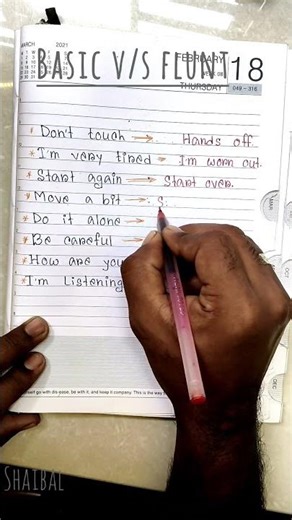 BASIC V/S FLUENT
MARCH 2021
FEBRUARY
18
THURSDAY
049 - 316
* Don't touch → Hands off.
* I'm very tired → Im worn out.
* Start again → Start over.
* Move a bit → S
* Do it alone →
* Be careful →
* How are you
* I'm Listening
go with dis-ease, be with it, and keep it company. This is the way
SHAIBAL